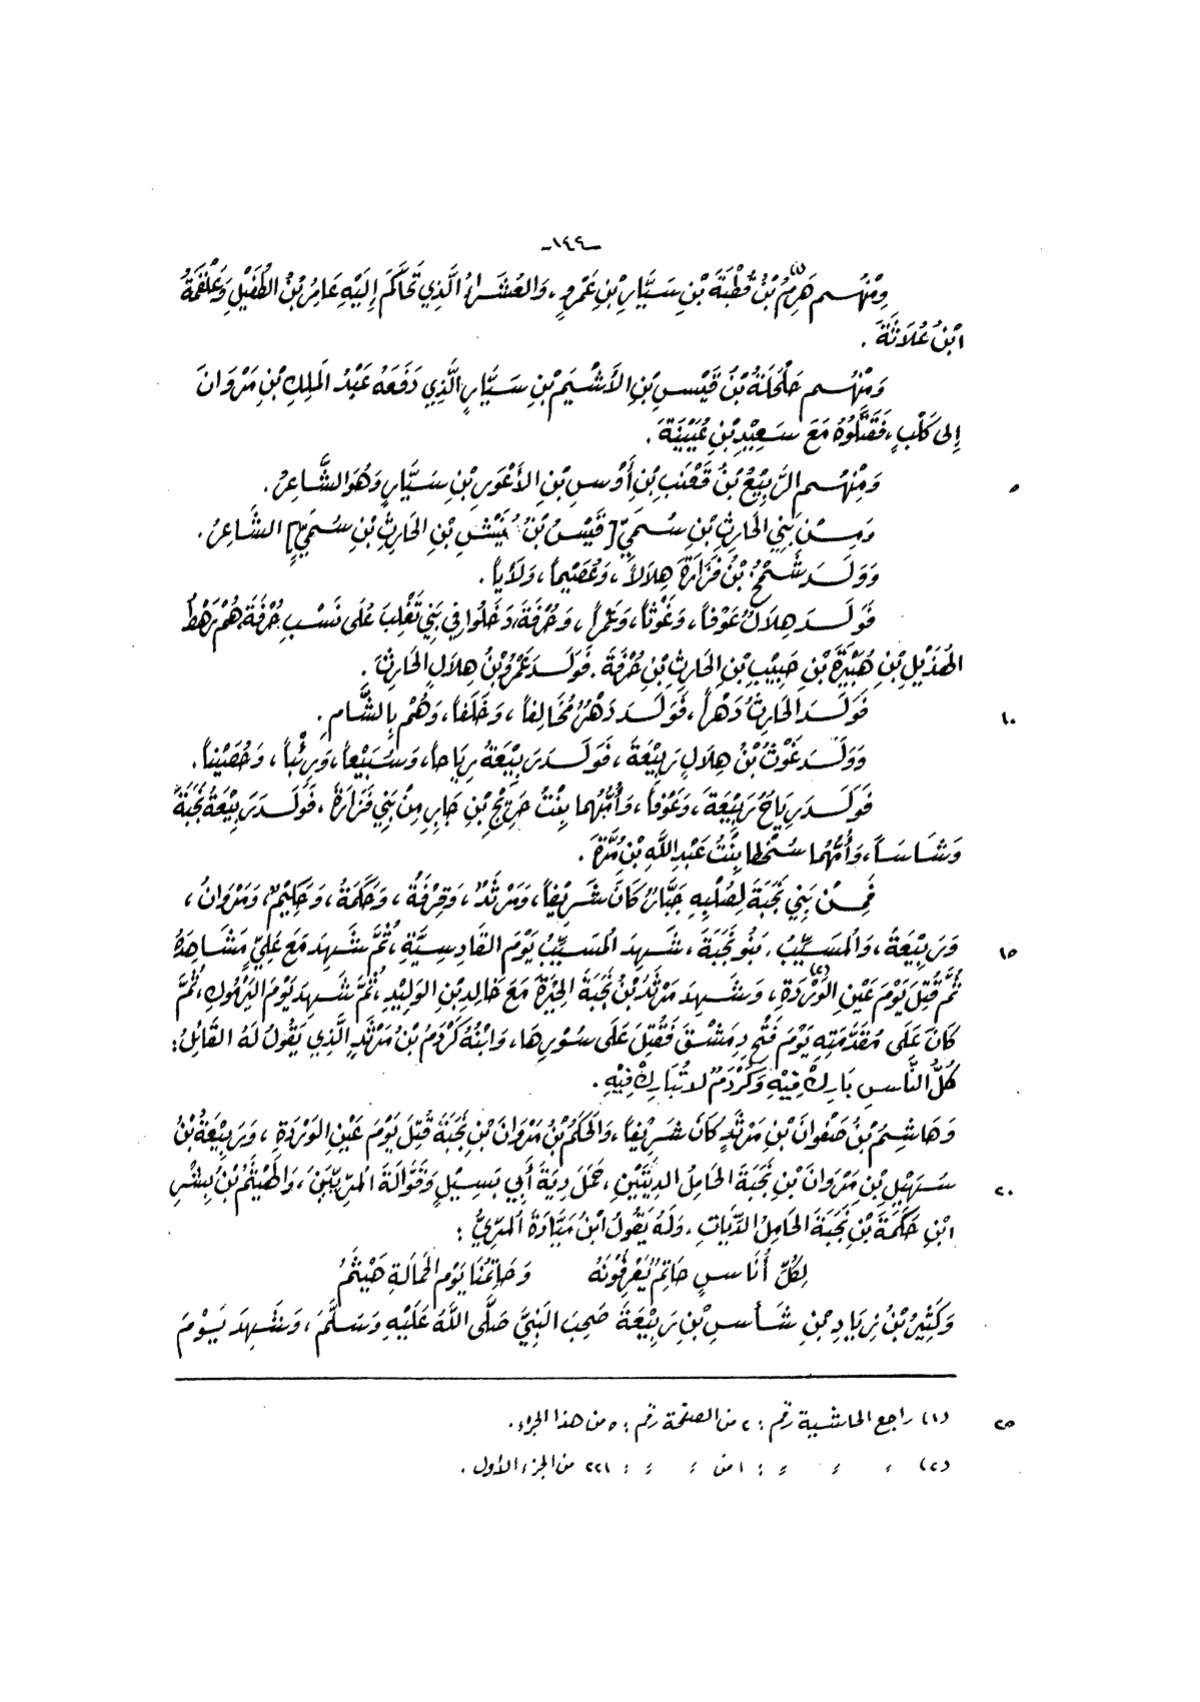 -١٤٩-
وَمِنْهُم هَرِمُ(١) بْنُ قُطْبَةَ بْنِ سَيَّارِ بْنِ عَمْرٍو، وَالعُشَرَاءُ الَّذِي تَحَاكَمَ إِلَيْهِ عَامِرُ بْنُ الطُّفَيْلِ وَعَلْقَمَةُ
ابْنُ عُلَاثَةَ .
وَمِنْهُم حَلْحَلَةُ بْنُ قَيْسِ بْنِ الأَشْيَمِ بْنِ سَيَّارٍ الَّذِي دَفَعَهُ عَبْدُ المَلِكِ بْنُ مَرْوَانَ
إِلى كَلْبٍ، فَقَتَلُوهُ مَعَ سَعِيدِ بْنِ عُيَيْنَةَ .
وَمِنْهُم الرَّبِيْعُ بْنُ قَعْنَبِ بْنِ أَوْسِ بْنِ الأَعْوَرِ بْنِ سَيَّارٍ وَهُوَ الشَّاعِرُ . ٥
وَمِنْ بَنِي الحَارِثِ بْنِ سُمَيٍّ [قَيْسُ بْنُ بْنِ الحَارِثِ بْنِ سُمَيٍّ] الشَّاعِرُ .
وَوَلَدَ شَمْخُ بْنُ فَزَارَةَ هِلَالاً، وَعُصَيْماً، وَلَأْياً .
فَوَلَدَ هِلَالٌ عَوْفاً، وَغَوْثاً، وَعَمْراً، وَحُرْفَةَ، دَخَلُوا فِي بَنِي تَغْلِبَ عَلَى نَسْبِ حُرْفَةَ، هُمْ رَهْطُ
الهُذَيْلِ بْنِ هُبَيْرَةَ بْنِ حَبِيْبِ بْنِ الحَارِثِ بْنِ حُرْفَةَ . فَوَلَدَ عَمْرُو بْنُ هِلَالٍ الحَارِثَ .
فَوَلَدَ الحَارِثُ دَهْراً، فَوَلَدَ دَهْرٌ مُخَالِفاً، وَخَلَفاً، وَهُمْ بِالشَّامِ . ١٠
وَوَلَدَ غَوْثُ بْنُ هِلَالٍ رَبِيْعَةَ، فَوَلَدَ رَبِيْعَةُ رِيَاحاً، وَسُبَيْعاً، وَرِئْباً، وَحُصَيْناً .
فَوَلَدَ رِيَاحُ رَبِيْعَةَ، وَعَوْفاً، وَأُمُّهُمَا بِنْتُ خَرِيْجِ بْنِ جَابِرٍ مِنْ بَنِي فَزَارَةَ، فَوَلَدَ رَبِيْعَةُ نُجَبَةَ
وَشَاسَاً، وَأُمُّهُمَا سُخْطَا بِنْتُ عَبْدِ اللَّهِ بْنِ مُرَّةَ .
فَمِنْ بَنِي نُجَبَةَ لِصُلْبِهِ جَبَّارٌ كَانَ شَرِيْفاً، وَمَرْثَدٌ، وَقِرْفَةُ، وَحَكَمَةُ، وَحَكِيْمٌ، وَمَرْوَانُ،
وَرَبِيْعَةُ، وَالمُسَيِّبُ . بَنُو نُجَبَةَ، شَهِدَ المُسَيِّبُ يَوْمَ القَادِسِيَّةِ، ثُمَّ شَهِدَ مَعَ عَلِيٍّ مَشَاهِدَهُ ١٥
ثُمَّ قُتِلَ يَوْمَ عَيْنِ الوَرْدَةِ(٢)، وَشَهِدَ مَرْثَدُ بْنُ نُجَبَةَ الحِيْرَةَ مَعَ خَالِدِ بْنِ الوَلِيْدِ، ثُمَّ شَهِدَ يَوْمَ اليَرْمُوكِ، ثُمَّ
كَانَ عَلَى مُقَدَّمَتِهِ يَوْمَ فَتْحِ دِمَشْقَ فَقُتِلَ عَلَى سُوْرِهَا، وَابْنُهُ كَرْدَمُ بْنُ مَرْثَدٍ الَّذِي يَقُولُ لَهُ القَائِلُ:
كُلَّ النَّاسِ بَارِكْ فِيْهِ وَكَرْدَمٌ لَا تُبَارِكْ فِيْهِ .
وَهَاشِمُ بْنُ صَفْوَانَ بْنِ مَرْثَدٍ كَانَ شَرِيْفاً، وَالحَكَمُ بْنُ مَرْوَانَ بْنِ نُجَبَةَ قُتِلَ يَوْمَ عَيْنِ الوَرْدَةِ، وَرَبِيْعَةُ بْنُ
سُهَيْلِ بْنِ مَرْوَانَ بْنِ نُجَبَةَ الحَامِلُ الدِيَتَيْنِ، حَمَلَ دِيَةَ أَبِي بَسِيْلٍ وَقَوَّالَةَ المُرِّيَّيْنِ، وَالهَيْثَمُ بْنُ بِشْرِ ٢٠
ابْنِ حَكَمَةَ بْنِ نُجَبَةَ الحَامِلُ الدِّيَاتِ . وَلَهُ يَقُولُ ابْنُ مَيَّادَةَ المُرِّيُّ :
لِكُلِّ أُنَاسٍ حَاتِمٌ يَعْرِفُونَهُ وَحَاتِمُنَا يَوْمَ الحَمَالَةِ هَيْثَمُ
وَكَثِيْرُ بْنُ زِيَادٍ مِنْ شَأْسِ بْنِ رَبِيْعَةَ صَحِبَ النَّبِيَّ صَلَّى اللَّهُ عَلَيْهِ وَسَلَّمَ، وَشَهِدَ يَوْمَ
(١) راجع الحاشية رقم : ٢ من الصفحة رقم : ٥ من هذا الجزء . ٢٥
(٢) ؛ ؛ ؛ : ١ من ؛ ؛ : ٢٢١ من الجزء الأول .